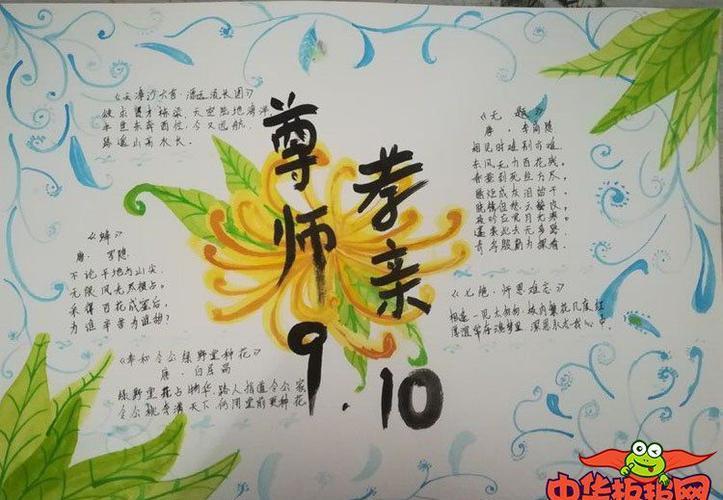 路遥山高水长。
《蜂》
唐．罗隐
不论平地与山尖，
无限风光尽被占。
采得百花成蜜后，
为谁辛苦为谁甜？
《奉和令公绿野堂种花》
唐．白居易
绿野堂开占物华，路人指道令公家
令公桃李满天下，何用堂前更种花
尊师
孝亲
9.10
《无题》
唐．李商隐
相见时难别亦难，
东风无力百花残。
春蚕到死丝方尽，
蜡炬成灰泪始干。
晓镜但愁云鬓改，
夜吟应觉月光寒。
蓬莱此去无多路，
青鸟殷勤为探看。
《七绝·师恩难忘》
中华板报网